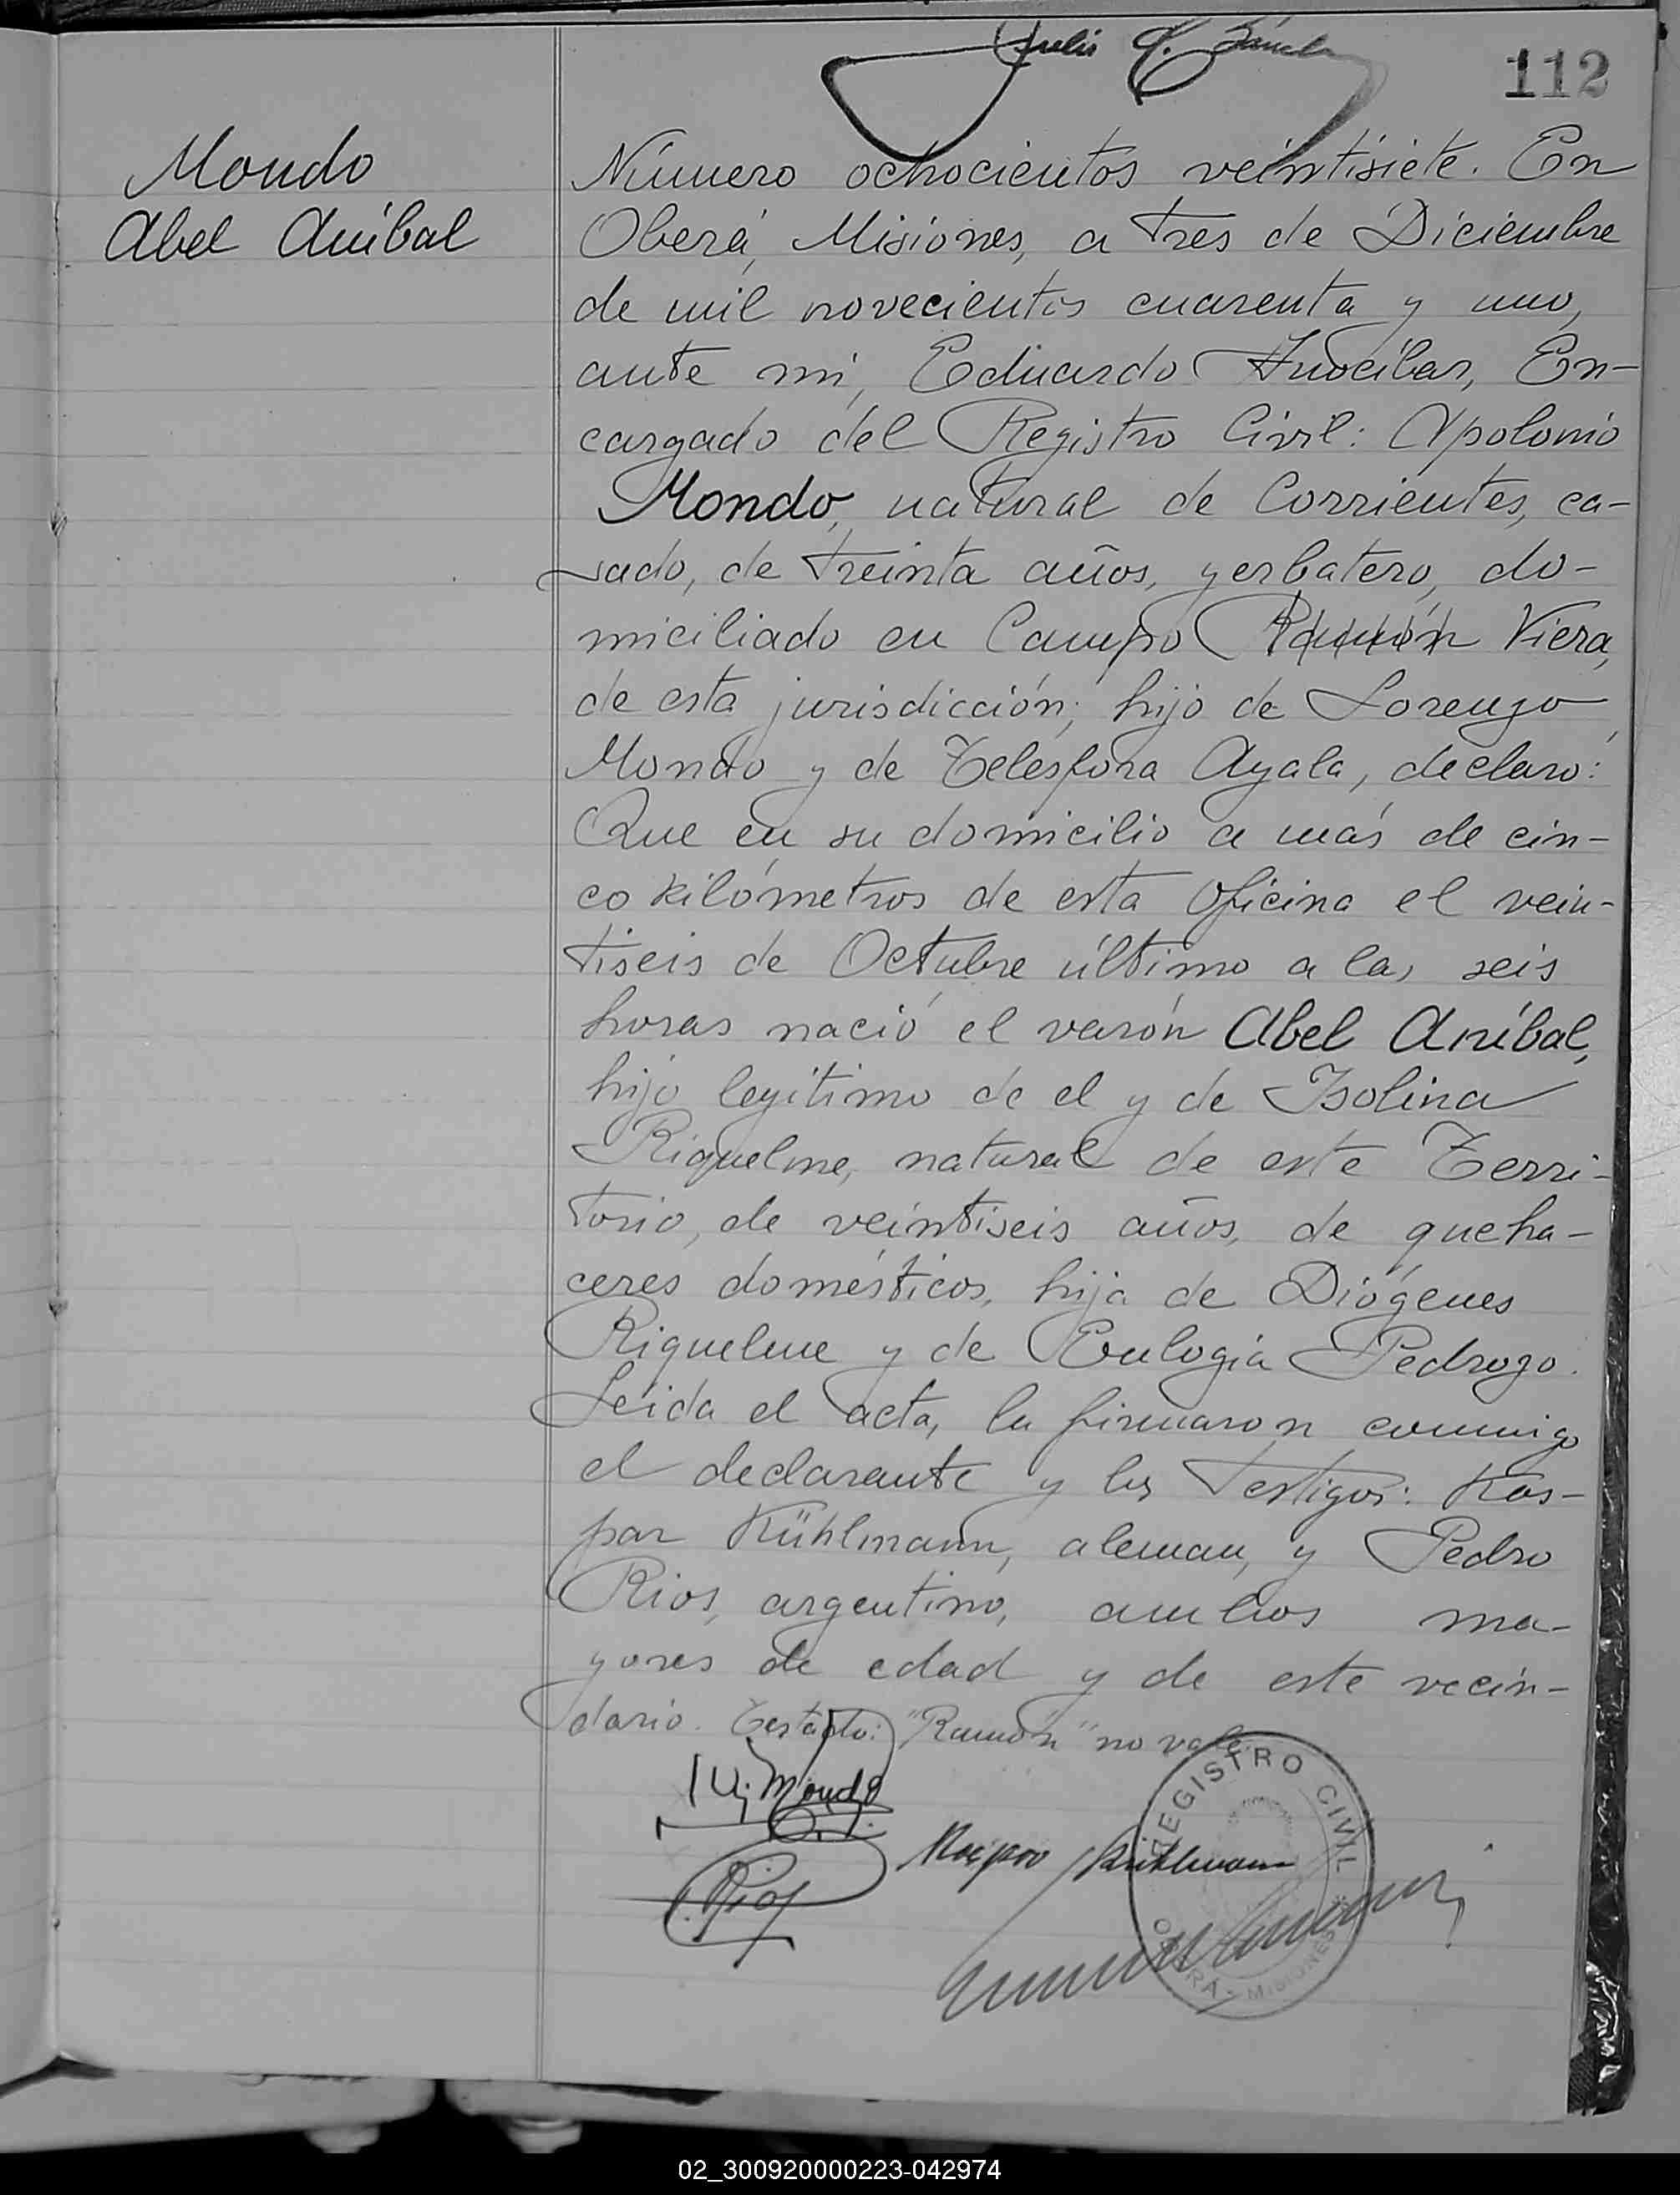 Julio A. Sánch
112
Mondo
Abel Aníbal
Número ochocientos veintisiete. En
Oberá, Misiones, a tres de Diciembre
de mil novecientos cuarenta y uno,
ante mí, Eduardo En-
cargado del Registro Civil: Apolonio
Mondo, natural de Corrientes, ca-
sado, de treinta años, yerbatero, do-
miciliado en Campo Ramón Viera,
de esta jurisdicción; hijo de Lorenzo
Mondo y de Telésfora Ayala, declaró:
Que en su domicilio a más de cin-
co kilómetros de esta Oficina el vein-
tiseis de Octubre último a las seis
horas nació el varón Abel Aníbal,
hijo legítimo de el y de Isolina
Riquelme, natural de este Terri-
torio, de veintiseis años, de queha-
ceres domésticos, hija de Diógenes
Riquelme y de Eulogia Pedrozo.
Leida el acta, la firmaron conmigo
el declarante y los testigos: Kas-
par Kühlmann, aleman, y Pedro
Rios, argentino, ambos ma-
yores de edad y de este vecin-
dario. Testado: "Ramón" no vale.
Mondo
Kaspar Kühlmann
P. Rios
REGISTRO CIVIL
OBERÁ - MISIONES
02_300920000223-042974